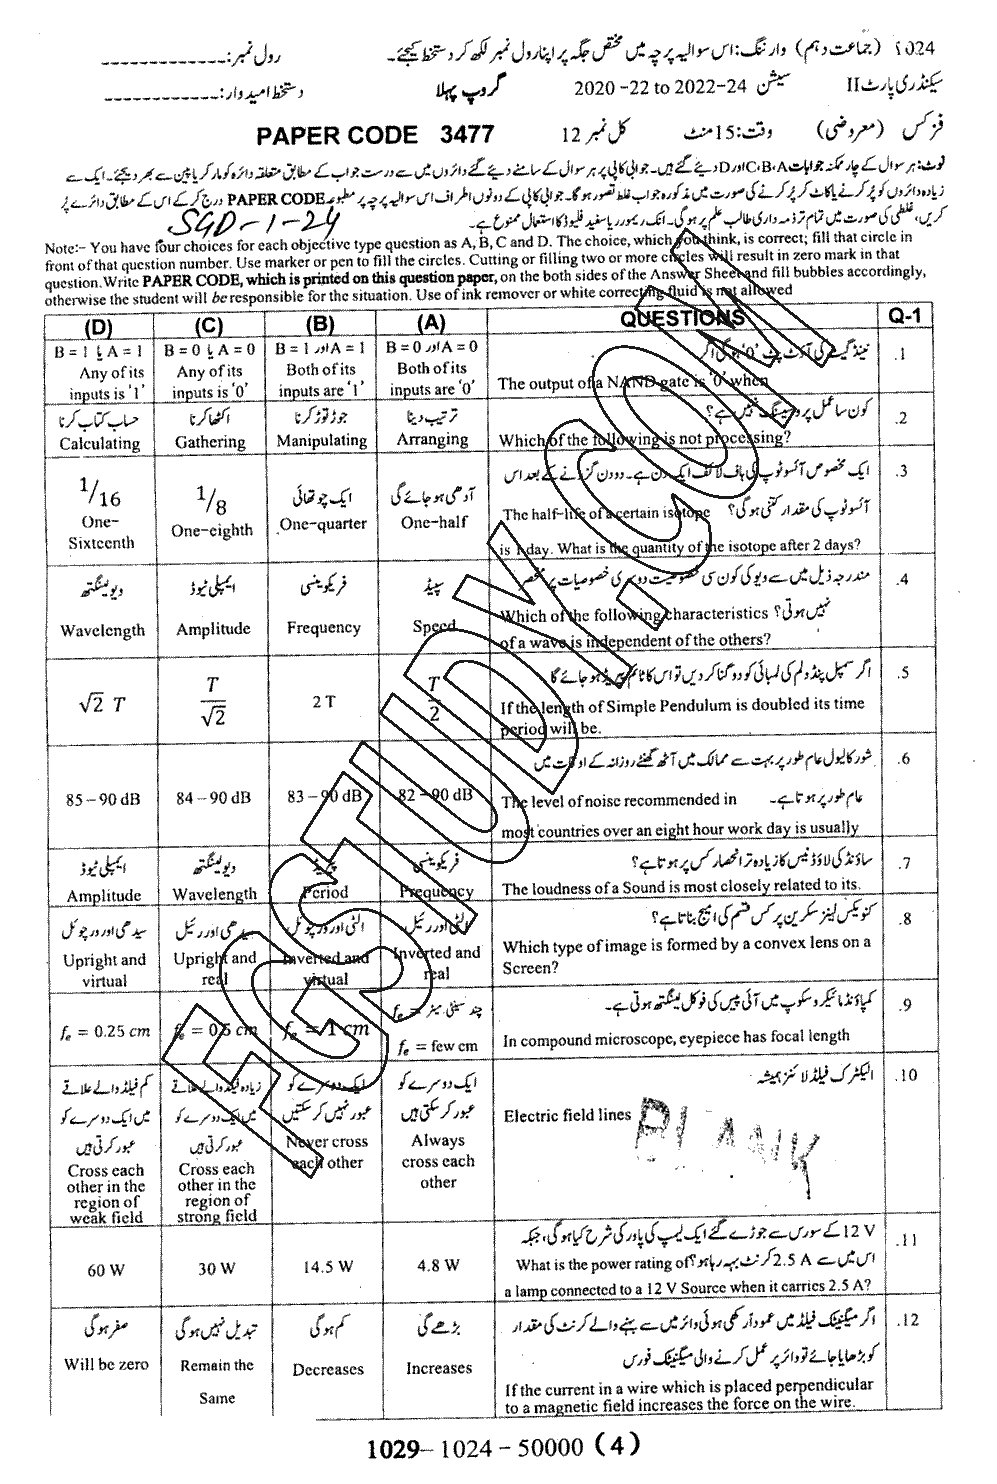 2024 (جماعت دہم) وارننگ: اس سوالیہ پرچہ میں مختص جگہ پر اپنا رول نمبر لکھ کر دستخط کیجئے۔ رول نمبر: -------------
سیکنڈری پارٹ II سیشن 2020 -22 to 2022-24 گروپ پہلا دستخط امیدوار: ------------
فزکس (معروضی) وقت: 15 منٹ کل نمبر 12 PAPER CODE 3477
نوٹ: ہر سوال کے چار ممکنہ جوابات C،B،A اور D دیئے گئے ہیں۔ جوابی کاپی پر ہر سوال کے سامنے دیئے گئے دائروں میں سے درست جواب کے مطابق متعلقہ دائرہ کو مارکر یا پین سے بھر دیجئے۔ ایک سے
زیادہ دائروں کو پُر کرنے یا کاٹ کر پُر کرنے کی صورت میں مذکورہ جواب غلط تصور ہوگا۔ جوابی کاپی کے دونوں اطراف اس سوالیہ پرچہ پر مطبوعہ PAPER CODE درج کر کے اس کے مطابق دائرے پُر
کریں، غلطی کی صورت میں تمام تر ذمہ داری طالب علم پر ہوگی۔ انک ریمور یا سفید فلیوڈ کا استعمال ممنوع ہے۔
SGD-1-24
Note:- You have four choices for each objective type question as A, B, C and D. The choice, which you think, is correct; fill that circle in
front of that question number. Use marker or pen to fill the circles. Cutting or filling two or more circles will result in zero mark in that
question. Write PAPER CODE, which is printed on this question paper, on the both sides of the Answer Sheet and fill bubbles accordingly,
otherwise the student will be responsible for the situation. Use of ink remover or white correcting fluid is not allowed
(D) (C) (B) (A) QUESTIONS Q-1
B = 1 یا A = 1 B = 0 یا A = 0 B = 1 اور A = 1 B = 0 اور A = 0 نینڈ گیٹ کی آؤٹ پٹ '0' ہوگی اگر .1
Any of its inputs is '1' Any of its inputs is '0' Both of its inputs are '1' Both of its inputs are '0' The output of a NAND gate is '0' when
حساب کتاب کرنا اکٹھا کرنا جوڑ توڑ کرنا ترتیب دینا کون سا عمل پروسیسنگ نہیں ہے؟ .2
Calculating Gathering Manipulating Arranging Which of the following is not processing?
1/16 1/8 ایک چوتھائی آدھی ہو جائے گی ایک مخصوص آئسوٹوپ کی ہاف لائف ایک دن ہے۔ دو دن گزرنے کے بعد اس .3
آئسوٹوپ کی مقدار کتنی ہوگی؟
One-Sixteenth One-eighth One-quarter One-half The half-life of a certain isotope
is 1 day. What is the quantity of the isotope after 2 days?
ویولینگتھ ایمپلی ٹیوڈ فریکوئنسی سپیڈ مندرجہ ذیل میں سے ویو کی کون سی خصوصیت دوسری خصوصیات پر منحصر .4
نہیں ہوتی؟
Wavelength Amplitude Frequency Speed Which of the following characteristics
of a wave is independent of the others?
√2 T T/√2 2 T T/2 اگر سمپل پنڈولم کی لمبائی کو دوگنا کر دیں تو اس کا ٹائم پیریڈ ہو جائے گا .5
If the length of Simple Pendulum is doubled its time
period will be.
شور کا لیول عام طور پر بہت سے ممالک میں آٹھ گھنٹے روزانہ کے اوقات میں .6
عام طور پر ہوتا ہے۔
85 – 90 dB 84 – 90 dB 83 – 90 dB 82 – 90 dB The level of noise recommended in
most countries over an eight hour work day is usually
ایمپلی ٹیوڈ ویولینگتھ پیریڈ فریکوئنسی ساؤنڈ کی لاؤڈنیس کا زیادہ تر انحصار کس پر ہوتا ہے؟ .7
Amplitude Wavelength Period Frequency The loudness of a Sound is most closely related to its.
سیدھی اور ورچوئل سیدھی اور رئیل الٹی اور ورچوئل الٹی اور رئیل کنویکس لینز سکرین پر کس قسم کی امیج بناتا ہے؟ .8
Upright and virtual Upright and real Inverted and virtual Inverted and real Which type of image is formed by a convex lens on a
Screen?
چند سینٹی میٹر = fe کمپاؤنڈ مائیکروسکوپ میں آئی پیس کی فوکل لینگتھ ہوتی ہے۔ .9
fe = 0.25 cm fe = 0.5 cm fe = 1 cm fe = few cm In compound microscope, eyepiece has focal length
کم فیلڈ والے علاقے میں ایک دوسرے کو عبور کرتی ہیں زیادہ فیلڈ والے علاقے میں ایک دوسرے کو عبور کرتی ہیں ایک دوسرے کو عبور نہیں کر سکتیں ایک دوسرے کو عبور کر سکتی ہیں الیکٹرک فیلڈ لائنز ہمیشہ .10
Cross each other in the region of weak field Cross each other in the region of strong field Never cross each other Always cross each other Electric field lines
BLANK
12 V کے سورس سے جوڑے گئے ایک لیمپ کی پاور کی شرح کیا ہوگی، جبکہ .11
اس میں سے 2.5 A کرنٹ بہہ رہا ہو؟
60 W 30 W 14.5 W 4.8 W What is the power rating of
a lamp connected to a 12 V Source when it carries 2.5 A?
صفر ہوگی تبدیل نہیں ہوگی کم ہوگی بڑھے گی اگر میگنیٹک فیلڈ میں عموداً رکھی ہوئی وائر میں سے بہنے والے کرنٹ کی مقدار .12
کو بڑھایا جائے تو وائر پر عمل کرنے والی میگنیٹک فورس
Will be zero Remain the Same Decreases Increases If the current in a wire which is placed perpendicular
to a magnetic field increases the force on the wire.
1029– 1024 – 50000 (4)
FGSTUDY.COM